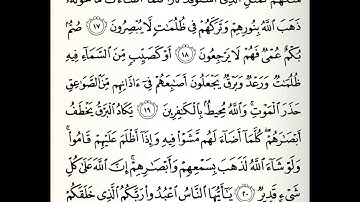 مَثَلُهُمْ كَمَثَلِ ٱلَّذِى ٱسْتَوْقَدَ نَارًا فَلَمَّآ أَضَآءَتْ مَا حَوْلَهُۥ
ذَهَبَ ٱللَّهُ بِنُورِهِمْ وَتَرَكَهُمْ فِى ظُلُمَٰتٍ لَّا يُبْصِرُونَ ١٧ صُمٌّۢ
بُكْمٌ عُمْىٌ فَهُمْ لَا يَرْجِعُونَ ١٨ أَوْ كَصَيِّبٍ مِّنَ ٱلسَّمَآءِ فِيهِ
ظُلُمَٰتٌ وَرَعْدٌ وَبَرْقٌ يَجْعَلُونَ أَصَٰبِعَهُمْ فِىٓ ءَاذَانِهِم مِّنَ ٱلصَّوَٰعِقِ
حَذَرَ ٱلْمَوْتِ ۚ وَٱللَّهُ مُحِيطٌۢ بِٱلْكَٰفِرِينَ ١٩ يَكَادُ ٱلْبَرْقُ يَخْطَفُ
أَبْصَٰرَهُمْ ۖ كُلَّمَآ أَضَآءَ لَهُم مَّشَوْا۟ فِيهِ وَإِذَآ أَظْلَمَ عَلَيْهِمْ قَامُوا۟ ۚ
وَلَوْ شَآءَ ٱللَّهُ لَذَهَبَ بِسَمْعِهِمْ وَأَبْصَٰرِهِمْ ۚ إِنَّ ٱللَّهَ عَلَىٰ كُلِّ
شَىْءٍ قَدِيرٌ ٢٠ يَٰٓأَيُّهَا ٱلنَّاسُ ٱعْبُدُوا۟ رَبَّكُمُ ٱلَّذِى خَلَقَكُمْ